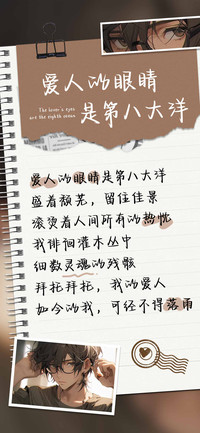 爱人的眼睛
The lover's eyes
are the eighth ocean
是第八大洋
爱人的眼睛是第八大洋
盛着颓芜，留住佳景
滚烫着人间所有的热忱
我徘徊灌木丛中
细数灵魂的残骸
拜托拜托，我的爱人
如今的我，可经不得落雨